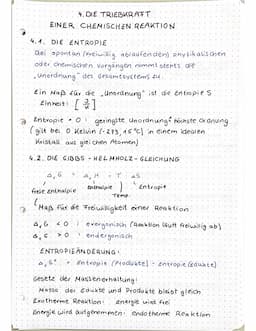 4. DIE TRIEBKRAFT
EINER CHEMISCHEN REAKTION
4.1. DIE ENTROPIE
Bei spontan (freiwillig ablaufenden) physikalischen
oder chemischen Vorgängen nimmt stets die
„Unordnung" des Gesamtsystems zu.
Ein Maß für die „Unordnung" ist die Entropie S
Einheit: [J/K]
Entropie = 0 : geringste Unordnung = höchste Ordnung
(gilt bei 0 Kelvin (-273,15°C) in einem idealen
Kristall aus gleichen Atomen)
4.2. DIE GIBBS-HELMHOLZ-GLEICHUNG
Δᵣ G = Δᵣ H - T · ΔS
freie Enthalpie Enthalpie Temp. Entropie
Maß für die Freiwilligkeit einer Reaktion
Δᵣ G < 0 : exergonisch (Reaktion läuft freiwillig ab)
Δᵣ G > 0 : endergonisch
ENTROPIEÄNDERUNG:
Δᵣ S° = Entropie (Produkte) - Entropie (Edukte)
Gesetz der Massenerhaltung:
Masse der Edukte und Produkte bleibt gleich
Exotherme Reaktion: Energie wird frei
Energie wird aufgenommen: endotherme Reaktion